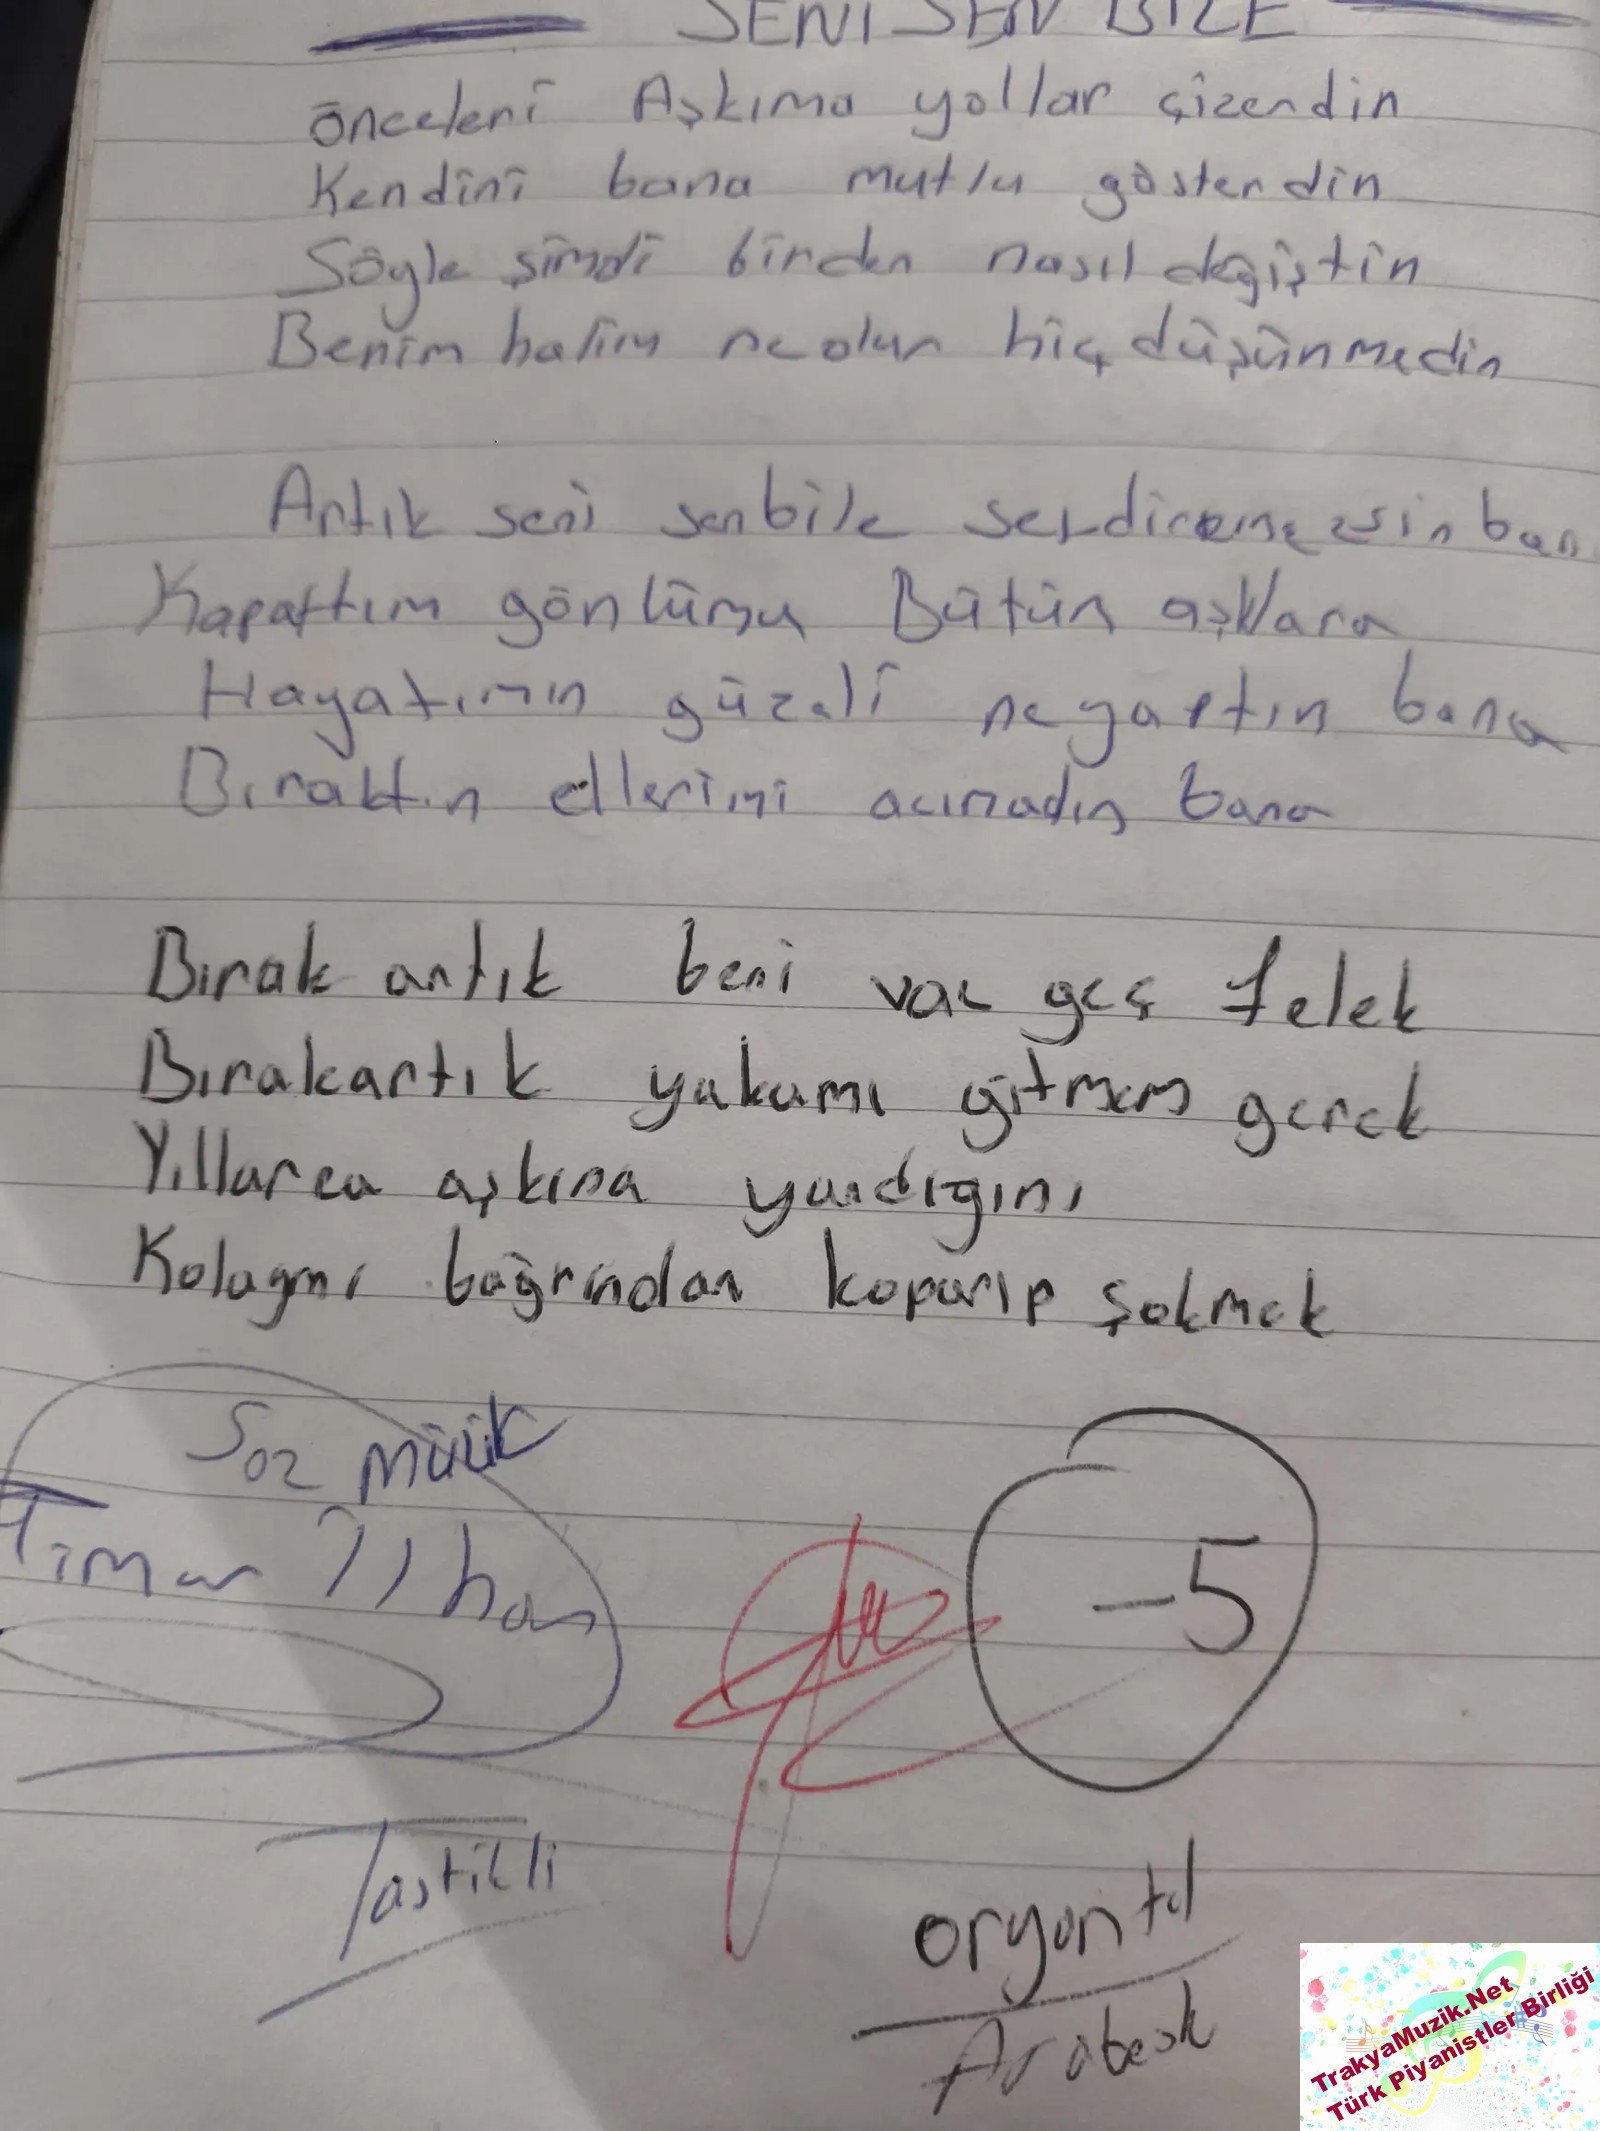 SENİ SEN BİLE
Önceleri Aşkıma yollar çizerdin
Kendini bana mutlu gösterdin
Söyle şimdi birden nasıl değiştin
Benim halim ne olur hiç düşünmedin
Artık seni sen bile sevdiremezsin ban
Kapattım gönlümü Bütün aşklara
Hayatımın güzeli ne yaptın bana
Bıraktın ellerimi acımadın bana
Bırak artık beni vac geç felek
Bırak artık yakamı gitmem gerek
Yıllarca aşkına yandığını
Kolaymı bağrından koparıp şökmek
Söz müzik
Timur İlhan
-5
Tastikli
oryantal
Arabesk
TrakyaMuzik.Net
Türk Piyanistler Birliği